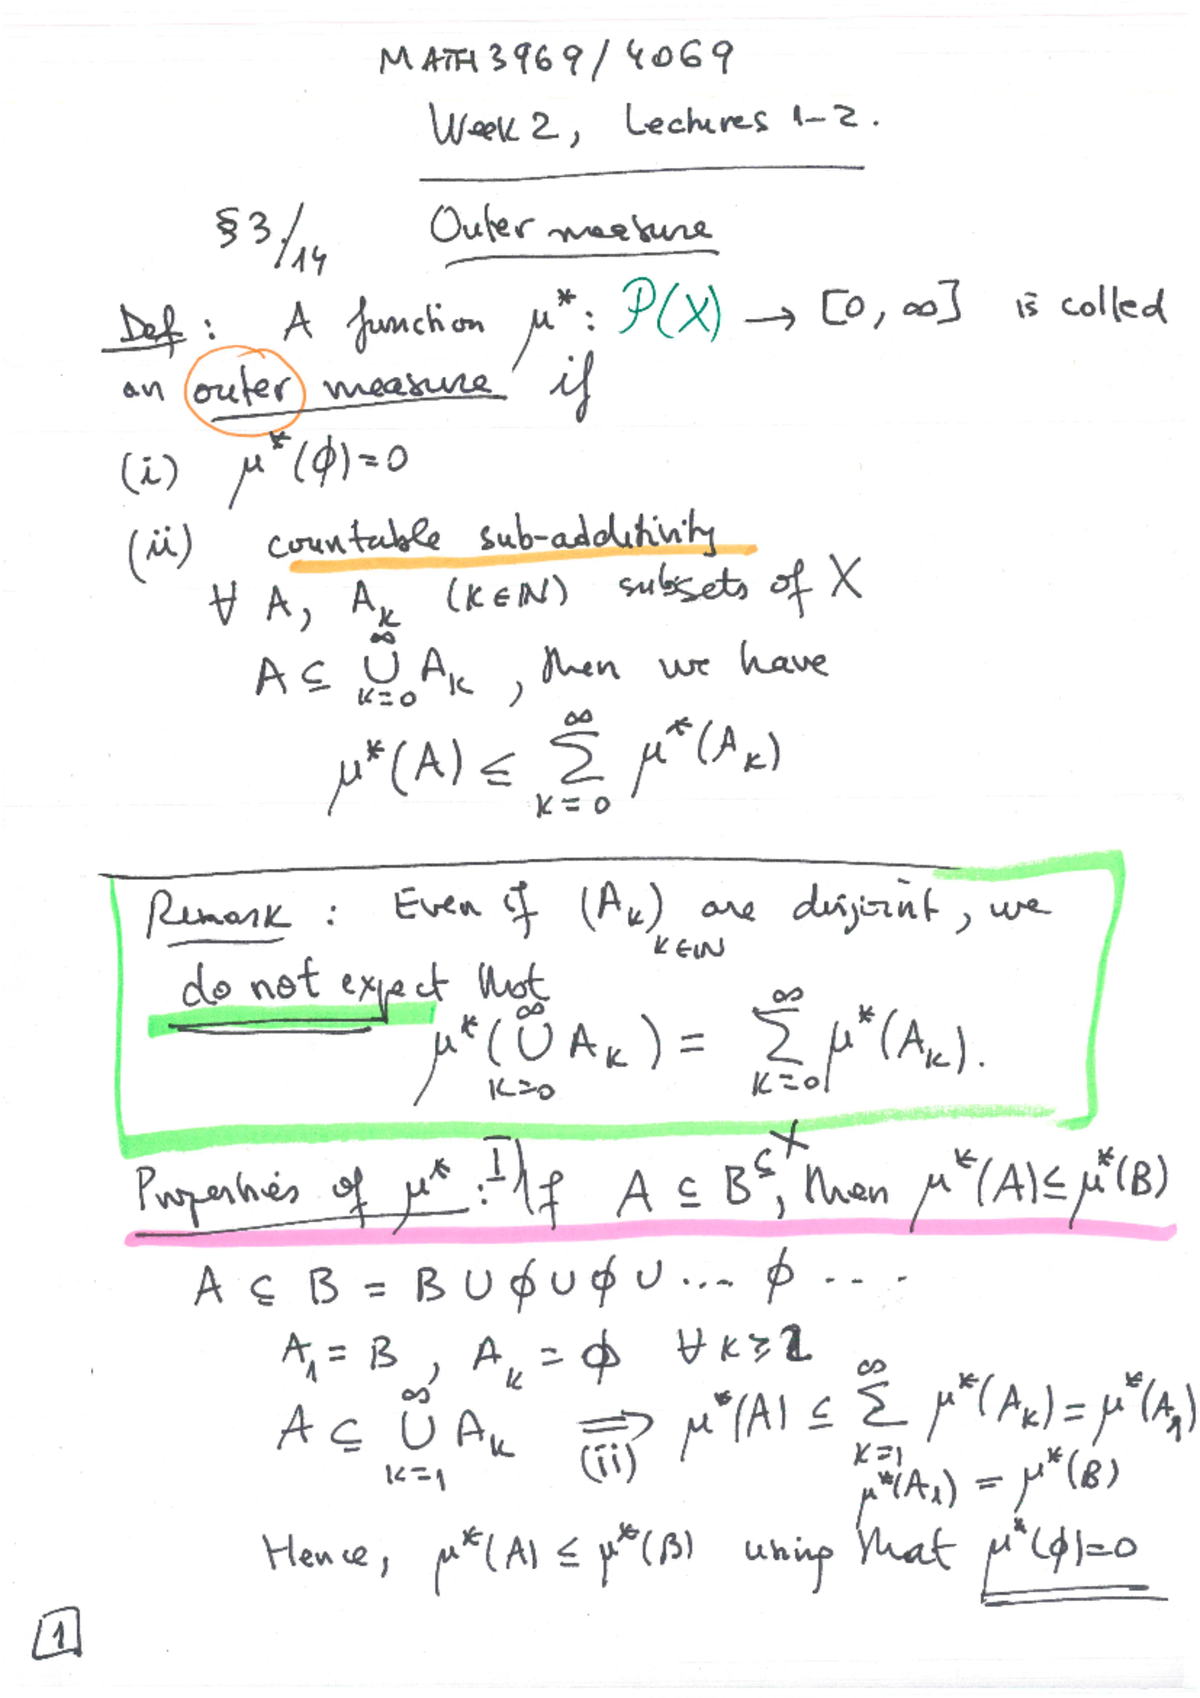 MATH 3969/4069
Week 2, Lectures 1-2.
§3/14 Outer measure
Def: A function μ*: P(X) → [0, ∞] is called
an outer measure if
(i) μ*(ϕ)=0
(ii) countable sub-additivity
∀ A, A_k (k∈ℕ) subsets of X
A ⊆ ∪_{k=0}^{∞} A_k, then we have
μ*(A) ≤ Σ_{k=0}^{∞} μ*(A_k)
Remark: Even if (A_k)_{k∈ℕ} are disjoint, we
do not expect that
μ*(∪_{k=0}^{∞} A_k) = Σ_{k=0}^{∞} μ*(A_k).
Properties of μ*: I) If A ⊆ B ⊆ X, then μ*(A) ≤ μ*(B)
A ⊆ B = B ∪ ϕ ∪ ϕ ∪ .... ϕ ....
A_1 = B, A_k = ϕ ∀ k ≥ 2
A ⊆ ∪_{k=1}^{∞} A_k ⟹_{(ii)} μ*(A) ≤ Σ_{k=1}^{∞} μ*(A_k) = μ*(A_1)
μ*(A_1) = μ*(B)
Hence, μ*(A) ≤ μ*(B) using that μ*(ϕ)=0
1